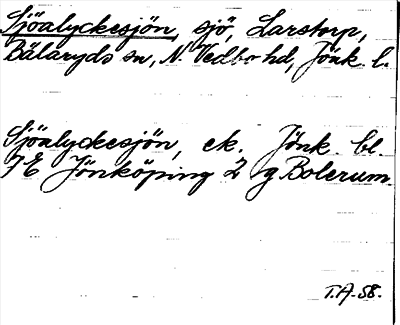 Sjöalyckesjön, sjö, Larstorp,
Bälaryds sn, N. Vedbo hd, Jönk. l.
Sjöalyckesjön, ek. Jönk. bl.
7E Jönköping 2 g Bolerum.
T.A. 58.